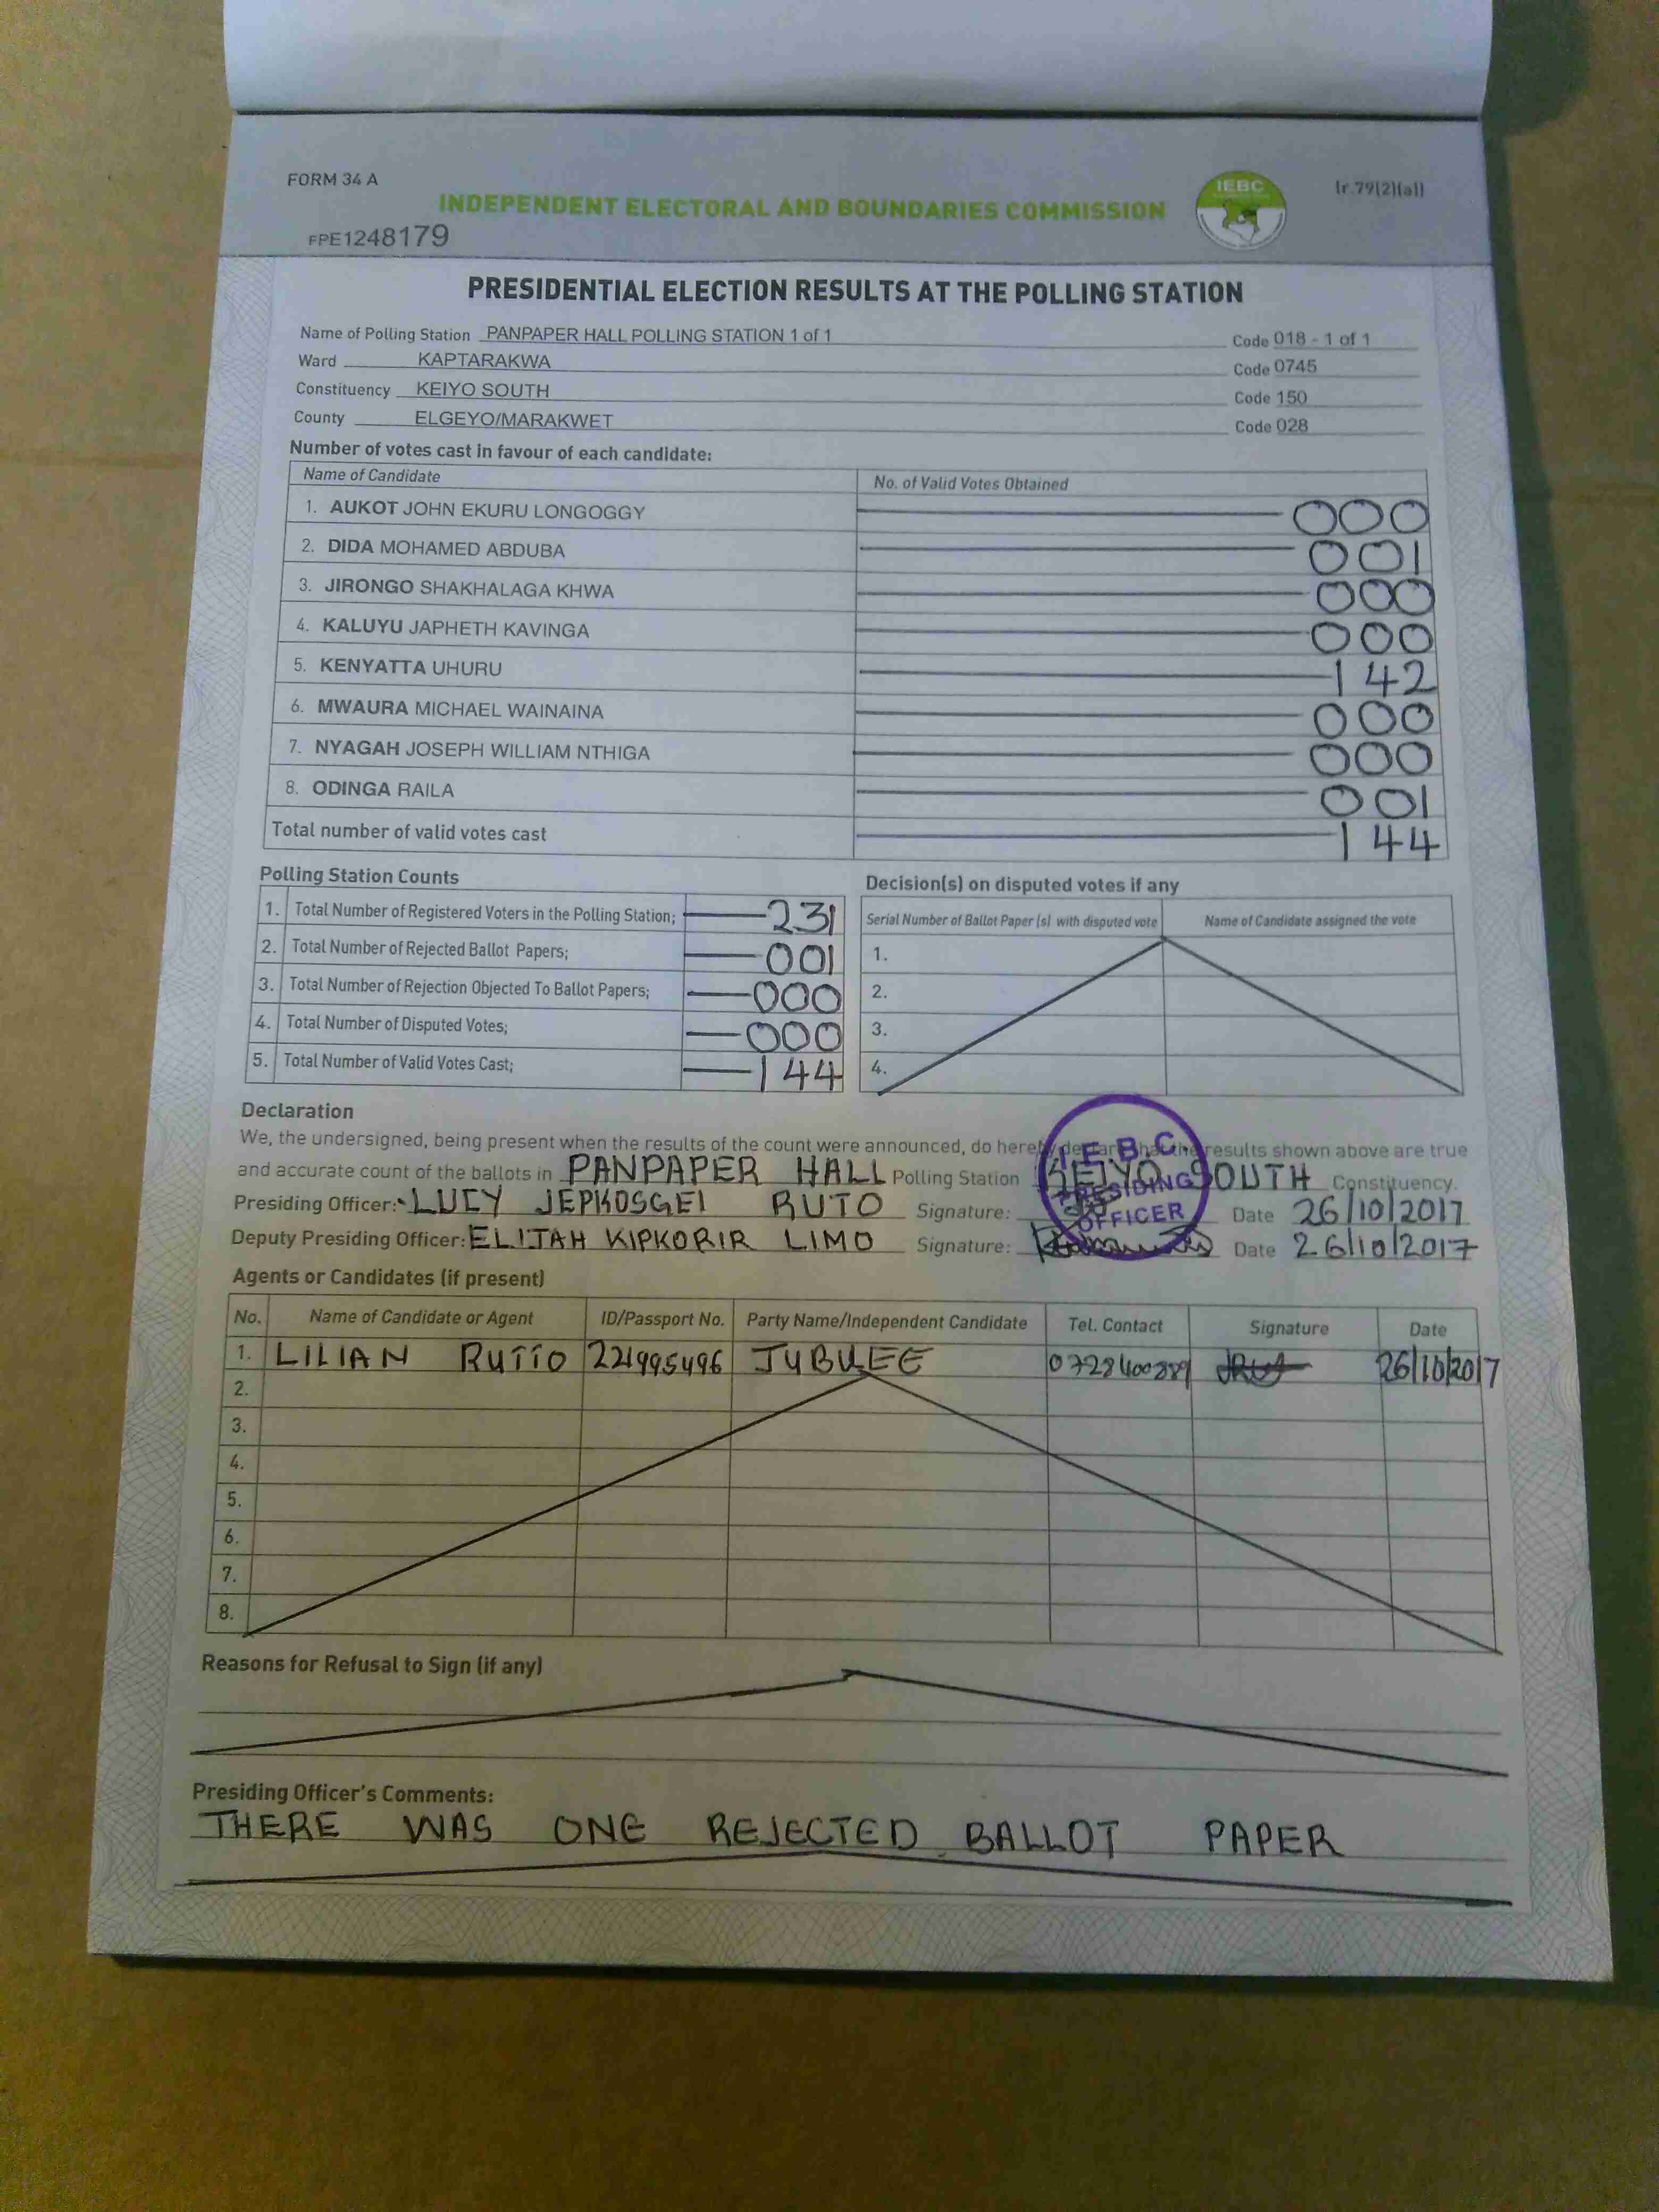 FORM 34 A
IEBC
(r.79(2)(a))
INDEPENDENT ELECTORAL AND BOUNDARIES COMMISSION
FPE1248179
PRESIDENTIAL ELECTION RESULTS AT THE POLLING STATION
Name of Polling Station PANPAPER HALL POLLING STATION 1 of 1 Code 018 - 1 of 1
Ward KAPTARAKWA Code 0745
Constituency KEIYO SOUTH Code 150
County ELGEYO/MARAKWET Code 028
Number of votes cast in favour of each candidate:
Name of Candidate No. of Valid Votes Obtained
1. AUKOT JOHN EKURU LONGOGGY 000
2. DIDA MOHAMED ABDUBA 001
3. JIRONGO SHAKHALAGA KHWA 000
4. KALUYU JAPHETH KAVINGA 000
5. KENYATTA UHURU 142
6. MWAURA MICHAEL WAINAINA 000
7. NYAGAH JOSEPH WILLIAM NTHIGA 000
8. ODINGA RAILA 001
Total number of valid votes cast 144
Polling Station Counts
1. Total Number of Registered Voters in the Polling Station; 231
2. Total Number of Rejected Ballot Papers; 001
3. Total Number of Rejection Objected To Ballot Papers; 000
4. Total Number of Disputed Votes; 000
5. Total Number of Valid Votes Cast; 144
Decision(s) on disputed votes if any
Serial Number of Ballot Paper (s) with disputed vote Name of Candidate assigned the vote
1.
2.
3.
4.
Declaration
We, the undersigned, being present when the results of the count were announced, do hereby declare that the results shown above are true
and accurate count of the ballots in PANPAPER HALL Polling Station KEIYO SOUTH Constituency.
Presiding Officer: LUCY JEPKOSGEI RUTO Signature: Date 26/10/2017
Deputy Presiding Officer: ELIJAH KIPKORIR LIMO Signature: Date 26/10/2017
I.E.B.C
PRESIDING
OFFICER
Agents or Candidates (if present)
No. Name of Candidate or Agent ID/Passport No. Party Name/Independent Candidate Tel. Contact Signature Date
1. LILIAN RUTTO 221995496 JUBILEE 26/10/2017
2.
3.
4.
5.
6.
7.
8.
Reasons for Refusal to Sign (if any)
Presiding Officer's Comments:
THERE WAS ONE REJECTED BALLOT PAPER